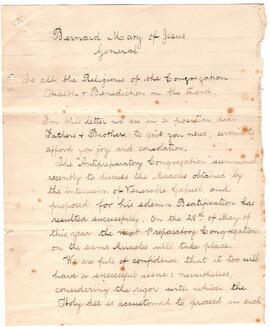 Bernard Mary of Jesus
General
To all the Religious of the Congregation
Health & Benediction in the Lord.
In this letter we are in a position dear
Fathers & Brothers to give you news, certain to
afford you joy and consolation.
The Antipreparatory Congregation summoned
recently to discuss the Miracles obtained
by the intercession of Venerable Gabriel and
proposed for his solemn Beatification has
resulted successfully. On the 28th of May of
this year the next Preparatory Congregation
on the same Miracles will take place.
We are full of confidence that it too will
have a successful issue: nevertheless,
considering the rigor with which the
Holy See is accustomed to proceed in such